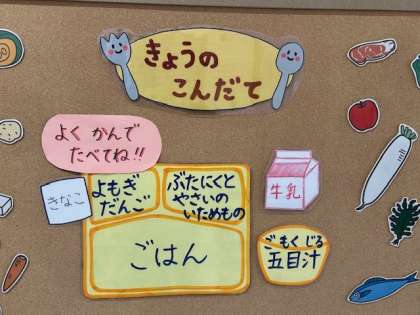 きょうの
こんだて
よく かんで
たべてね!!
きなこ
よもぎ
だんご
ぶたにくと
やさいの
いためもの
牛乳
ごはん
ごもくじる
五目汁